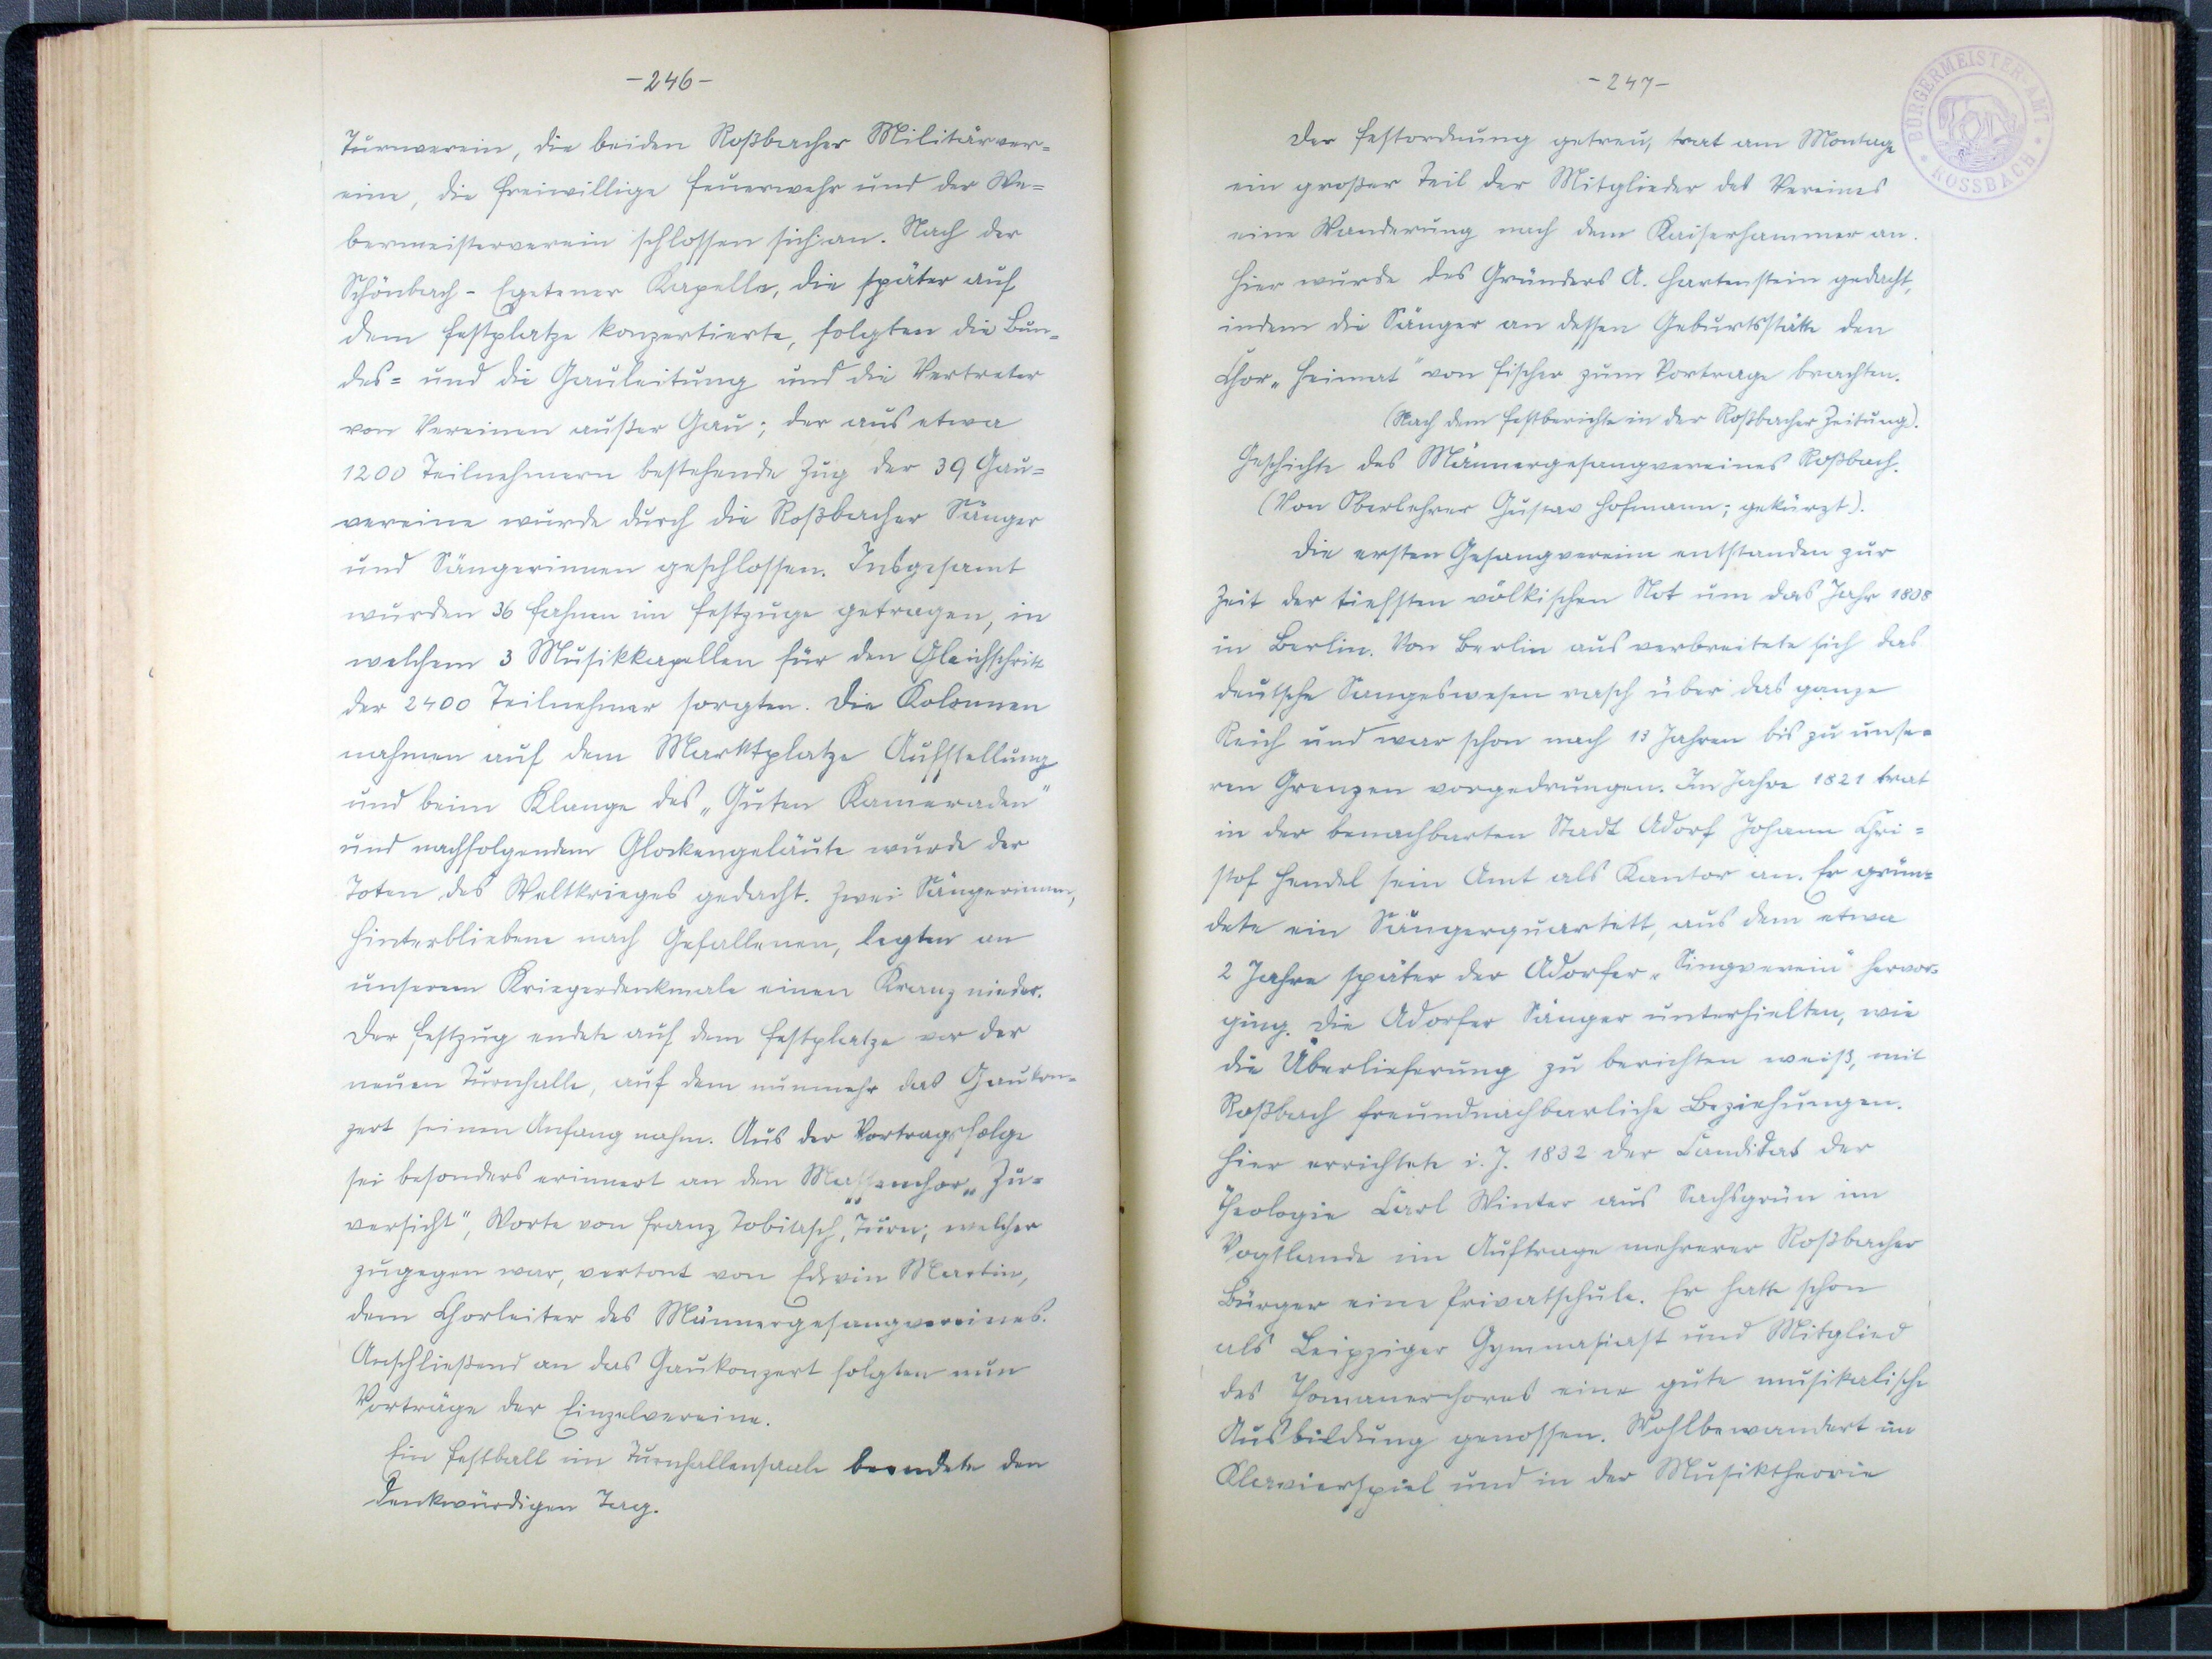 -246-
Turnverein, die beiden Roßbacher Militärver=
eine, die freiwillige Feuerwehr und der We=
bermeisterverein schlossen sich an. Nach der
Schönbach-Egetener Kapelle, die später auf
dem Festplatze konzertierte, folgten die Bun=
des= und die Gauleitung und die Vertreter
von Vereinen außer Gau; der aus etwa
1200 Teilnehmern bestehende Zug der 39 Gau=
vereine wurde durch die Roßbacher Sänger
und Sängerinnen geschlossen. Insgesamt
wurden 36 Fahnen im Festzuge getragen, in
welchem 3 Musikkapellen für den Gleichschritt
der 2400 Teilnehmer sorgten. Die Kolonnen
nahmen auf dem Marktplatze Aufstellung
und beim Klange des „Guten Kameraden"
und nachfolgendem Glockengeläute wurde der
Toten des Weltkrieges gedacht. Zwei Sängerinnen,
Hinterbliebene nach Gefallenen, legten an
unserem Kriegerdenkmale einen Kranz nieder.
Der Festzug endete auf dem Festplatze vor der
neuen Turnhalle, auf dem nunmehr das Gaukon=
zert seinen Anfang nahm. Aus der Vortragsfolge
sei besonders erinnert an den Massenchor „Zu=
versicht", Worte von Franz Tobitasch, Turn; welcher
zugegen war, vertont von Edwin Martin,
dem Chorleiter des Männergesangvereines.
Anschließend an das Gaukonzert folgten nun
Vorträge der Einzelvereine.
Ein Festball im Turnhallensaale beendete den
denkwürdigen Tag.
-247-
BÜRGERMEISTER-AMT
ROSSBACH
Der Festordnung getreu, trat am Montage
ein großer Teil der Mitglieder des Vereines
eine Wanderung nach dem Kaiserhammer an.
Hier wurde des Gründers A. Hartenstein gedacht,
indem die Sänger an dessen Geburtsstätte den
Chor „Heimat" von Fischer zum Vortrage brachten.
(Nach dem Festberichte in der Roßbacher Zeitung).
Geschichte des Männergesangvereines Roßbach.
(Von Oberlehrer Gustav Hofmann; gekürzt).
Die ersten Gesangvereine entstanden zur
Zeit der tiefsten völkischen Not um das Jahr 1808
in Berlin. Von Berlin aus verbreitete sich das
deutsche Sangeswesen rasch über das ganze
Reich und war schon nach 13 Jahren bis zu unse=
ren Grenzen vorgedrungen. Im Jahre 1821 trat
in der benachbarten Stadt Adorf Johann Chri=
stof Hendel sein Amt als Kantor an. Er grün=
dete ein Sängerquartett, aus dem etwa
2 Jahre später der Adorfer „Singverein" hervor=
ging. Die Adorfer Sänger unterhielten, wie
die Überlieferung zu berichten weiß, mit
Roßbach freundnachbarliche Beziehungen.
Hier errichtete i. J. 1832 der Candidat der
Theologie Carl Winter aus Sachsgrün im
Vogtlande im Auftrage mehrerer Roßbacher
Bürger eine Privatschule. Er hatte schon
als Leipziger Gymnasiast und Mitglied
des Thomanerchores eine gute musikalische
Ausbildung genossen. Wohlbewandert im
Klavierspiel und in der Musiktheorie